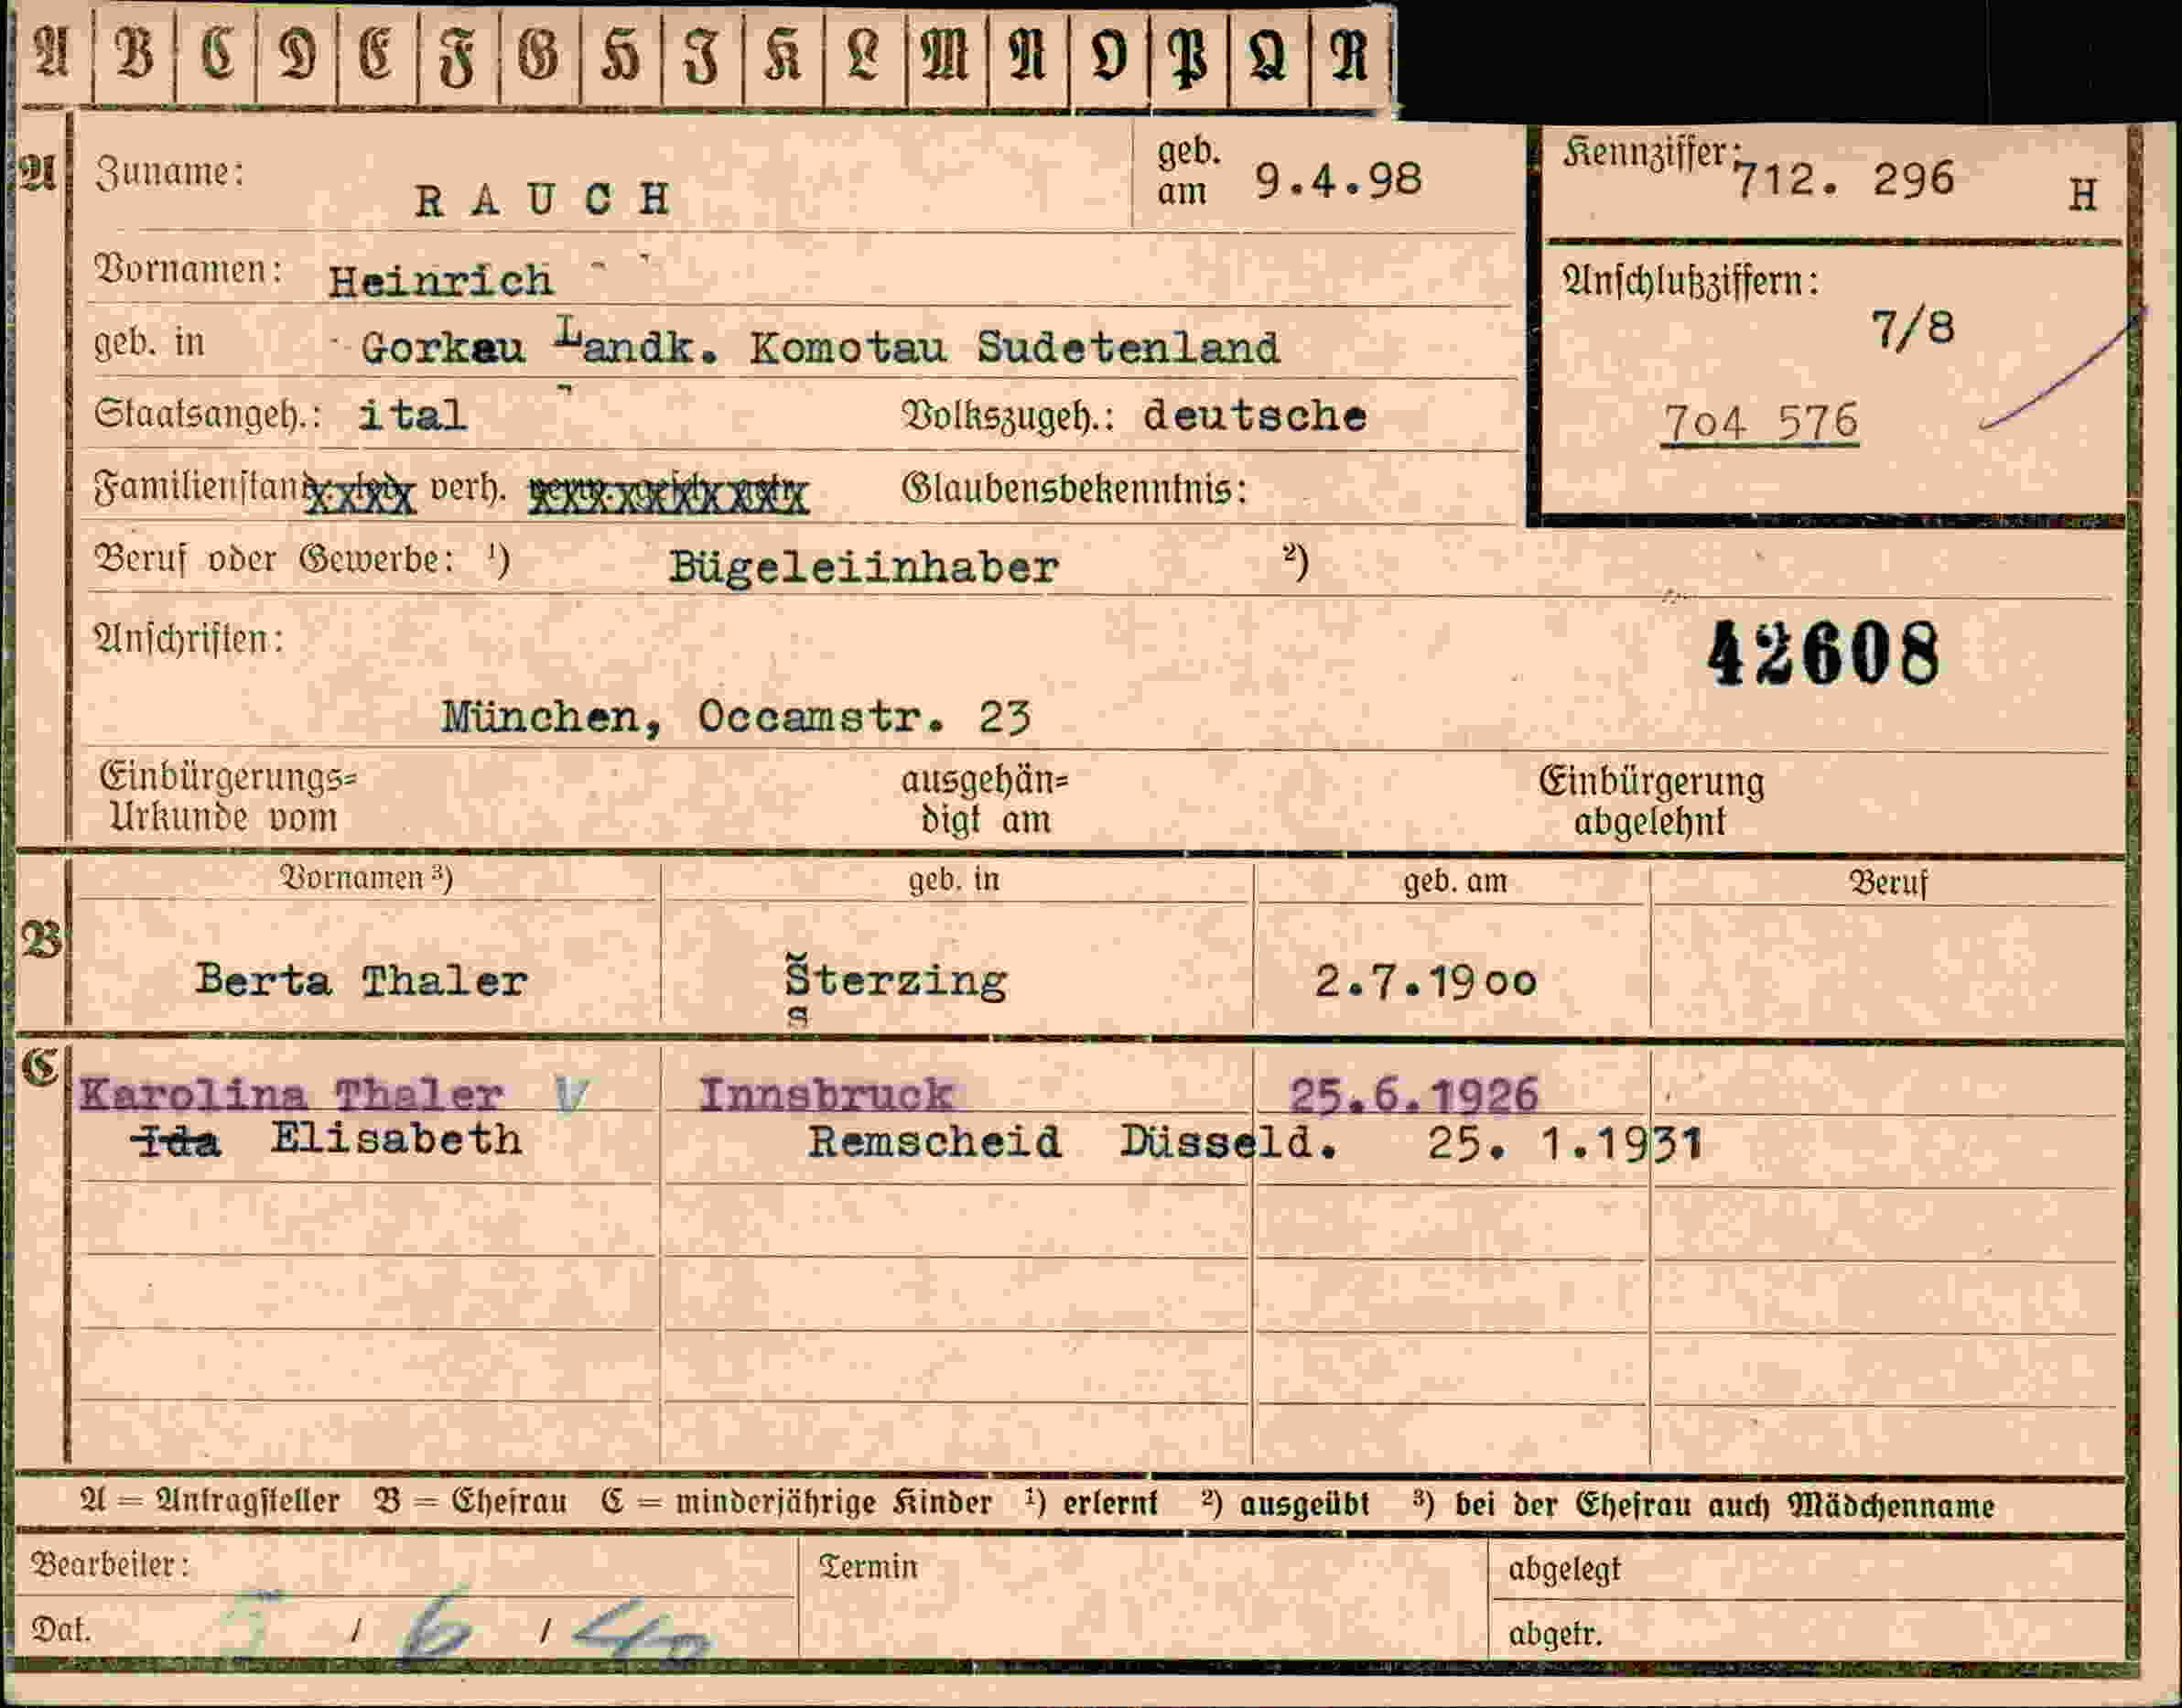 A B C D E F G H I K L M N O P Q R
A Zuname: RAUCH geb. am 9.4.98 Kennziffer: 712. 296 H
Vornamen: Heinrich
Anschlußziffern:
geb. in Gorkau Landk. Komotau Sudetenland 7/8
Staatsangeh.: ital Volkszugeh.: deutsche 704 576
Familienstand verh. Glaubensbekenntnis:
Beruf oder Gewerbe: ¹) Bügeleiinhaber ²)
Anschriften: 42608
München, Occamstr. 23
Einbürgerungs= ausgehän= Einbürgerung
Urkunde vom digt am abgelehnt
Vornamen ³) geb. in geb. am Beruf
B
Berta Thaler Sterzing 2.7.1900
s
C Karolina Thaler V Innsbruck 25.6.1926
Ida Elisabeth Remscheid Düsseld. 25. 1.1931
A = Antragsteller B = Ehefrau C = minderjährige Kinder ¹) erlernt ²) ausgeübt ³) bei der Ehefrau auch Mädchenname
Bearbeiter: Termin abgelegt
Dat. 5 / 6 / 40 abgetr.